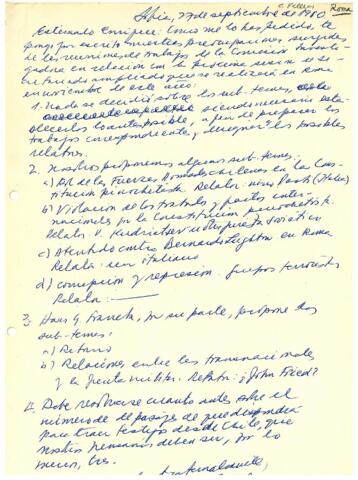 Roma
Sofia, 27 de septiembre de 1980
Estimado Enrique: Como me lo has pedido, te
pongo por escrito nuestras preocupaciones surgidas
de las reuniones de trabajo de la Comisión Investi-
gadora en relación con la próxima sesión
ampliada que se realizará en Roma
en noviembre de este año:
1. Nada se decidió sobre los sub-temas,
siendo necesario esta-
blecerlos lo antes posible, a fin de preparar los
trabajos correspondientes y los posibles
relatores.
2. Nosotros proponemos algunos sub-temas:
a) Rol de las Fuerzas Armadas chilenas en la Cons-
titución pinochetista. Relator: (Italia)
b) Violación de los tratados y pactos inter-
nacionales por la Constitución pinochetista.
Relator: V. Kudriatsev u otro jurista soviético
c) Atentado contra Bernardo Leighton en Roma
Relator: un italiano
d) corrupción y represión. Grupos terroristas
Relator:
3. Hans G. Franck, por su parte, propone dos
sub-temas:
a) Retorno
b) Relaciones entre las transnacionales
y la Junta militar. Relator: ¿John Fried?
4. Debe resolverse cuanto antes sobre el
número de pasajes de que dispondrá
para traer testigos desde Chile, que
nosotros pensamos deben ser, por lo
menos, tres.
Fraternalmente,